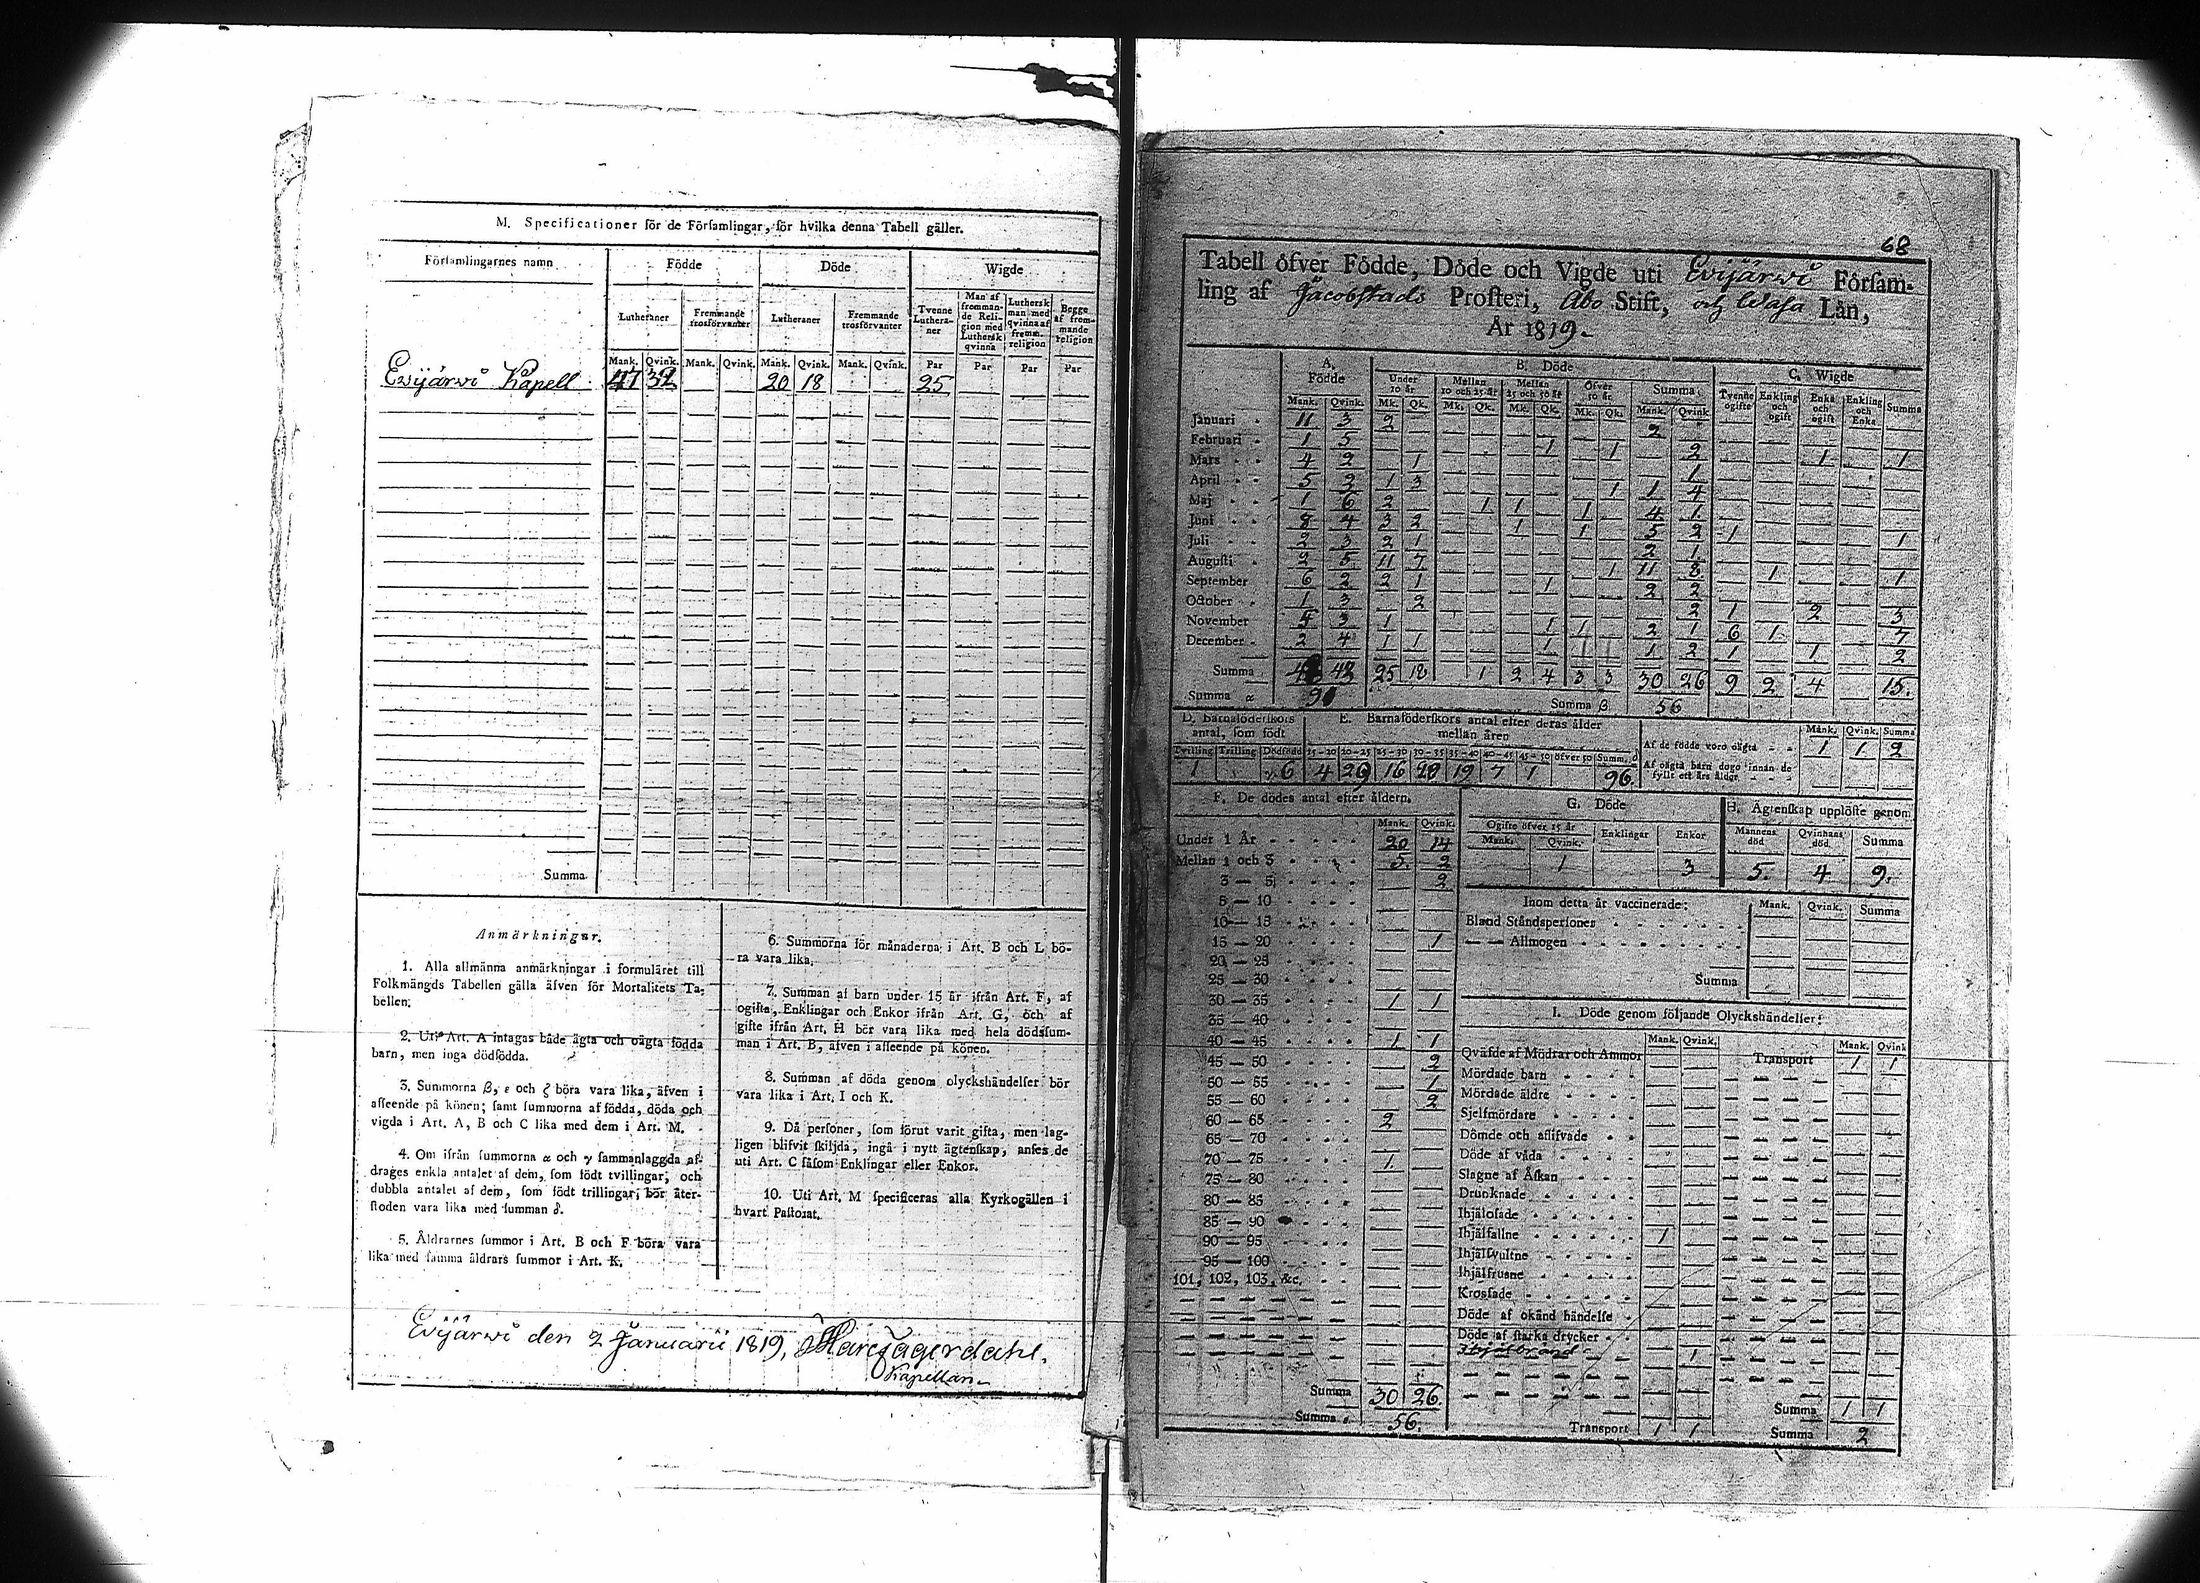 M. Specificationer för de Församlingar, för hvilka denna Tabell gäller.
Församlingarnes namn Födde Döde Wigde
Lutheraner Fremmande trosförvanter Lutheraner Fremmande trosförvanter Tvenne Lutheraner Man af frommande Religion med Luthersk qvinna Luthersk man med qvinna af fremm. religion Begge af fremmande religion
Mank. Qvink. Mank. Qvink. Mank. Qvink. Mank. Qvink. Par Par Par Par
Ewijärwi Kapell 47 32 20 18 25
Summa
Anmärkningar.
1. Alla allmänna anmärkningar i formuläret till
Folkmängds Tabellen gälla äfven för Mortalitets Ta-
bellen.
2. Uti Art. A intagas både ägta och oägta födda
barn, men inga dödfödda.
3. Summorna β, ε och ζ böra vara lika, äfven i
afseende på könen; samt summorna af födda, döda och
vigda i Art. A, B och C lika med dem i Art. M.
4. Om ifrån summorna α och γ sammanlaggda af-
drages enkla antalet af dem, som födt tvillingar, och
dubbla antalet af dem, som födt trillingar, bör åter-
stoden vara lika med summan δ.
5. Åldrarnes summor i Art. B och F böra vara
lika med samma åldrars summor i Art. K.
6. Summorna för månaderna i Art. B och L bö-
ra vara lika.
7. Summan af barn under 15 år ifrån Art. F, af
ogifta, Enklingar och Enkor ifrån Art. G, och af
gifte ifrån Art. H bör vara lika med hela dödssum-
man i Art. B, äfven i afseende på könen.
8. Summan af döda genom olyckshändelser bör
vara lika i Art. I och K.
9. Då personer, som förut varit gifta, men lag-
ligen blifvit skiljda, ingå i nytt ägtenskap, anses de
uti Art. C såsom Enklingar eller Enkor.
10. Uti Art. M specificeras alla Kyrkogällen i
hvart Pastorat.
Ewijärwi den 2 Januarii 1819,
Kapellan
68
Tabell öfver Födde, Döde och Vigde uti Ewijärwi Försam-
ling af Jacobstads Prosteri, Åbo Stift, och Wasa Län,
År 1819.
A. Födde B. Döde C. Wigde
Under 10 år Mellan 10 och 25 år Mellan 25 och 50 år Öfver 50 år Summa Tvenne ogifte Enkling och ogift Enka och ogift Enkling och Enka Summa
Mank. Qvink. Mk. Qk. Mk. Qk. Mk. Qk. Mk. Qk. Mank. Qvink.
Januari 11 3 2 2
Februari 1 5 1 1 2 1 1
Mars 4 2 1 1
April 5 2 1 3 1 1 4
Maj 1 6 2 1 1 1 4 1
Juni 8 4 3 2 1 1 5 2 1 1
Juli 2 3 2 1 2 1
Augusti 2 5 11 7 1 11 8 1 1
September 6 2 2 1 1 2 2
October 1 3 2 2 1 2 3
November 5 3 1 1 1 2 1 6 1 7
December 2 4 1 1 1 1 2 1 1 2
Summa 25 18 1 2 4 3 3 30 26 9 2 4 15.
Summa α Summa β 56
D. Barnaföderskors antal, som födt
E. Barnaföderskors antal efter deras ålder mellan åren
Tvilling Trilling Dödfödd 15-20 20-25 25-30 30-35 35-40 40-45 45-50 öfver 50 Summ. δ
1 γ 6 4 29 16 19 7 1 96.
Mank. Qvink. Summa
Af de födde voro oägta 1 1 2
Af oägta barn dogo innan de
fyllt ett års ålder
F. De dödes antal efter åldern.
Mank. Qvink.
Under 1 År 20 14
Mellan 1 och 3 5. 2
3 — 5 2
5 — 10
10 — 15
15 — 20 1
20 — 25
25 — 30
30 — 35 1 1
35 — 40
40 — 45 1 1
45 — 50 2
50 — 55 1
55 — 60 2
60 — 65 2
65 — 70
70 — 75 1.
75 — 80
80 — 85
85 — 90
90 — 95
95 — 100
101, 102, 103, &c.
Summa 30 26.
Summa ε 56.
G. Döde
Ogifte öfver 15 år Enklingar Enkor
Mank. Qvink.
1 3
H. Ägtenskap upplöste genom
Mannens död Qvinnans död Summa
5. 4 9.
Inom detta år vaccinerade: Mank. Qvink. Summa
Bland Ståndspersoner
— — Allmogen
Summa
I. Döde genom följande Olyckshändelser:
Mank. Qvink. Mank. Qvink
Qväfde af Mödrar och Ammor Transport 1 1
Mördade barn
Mördade äldre
Sjelfmördare
Dömde och aflifvade
Döde af våda
Slagne af Åskan
Drunknade
Ihjälosade
Ihjälfallne 1
Ihjälsvultne
Ihjälfrusne
Krossade
Döde af okänd händelse
Döde af starka drycker
Ihjälbränd 1
Summa 1 1
Transport 1 1 Summa 2